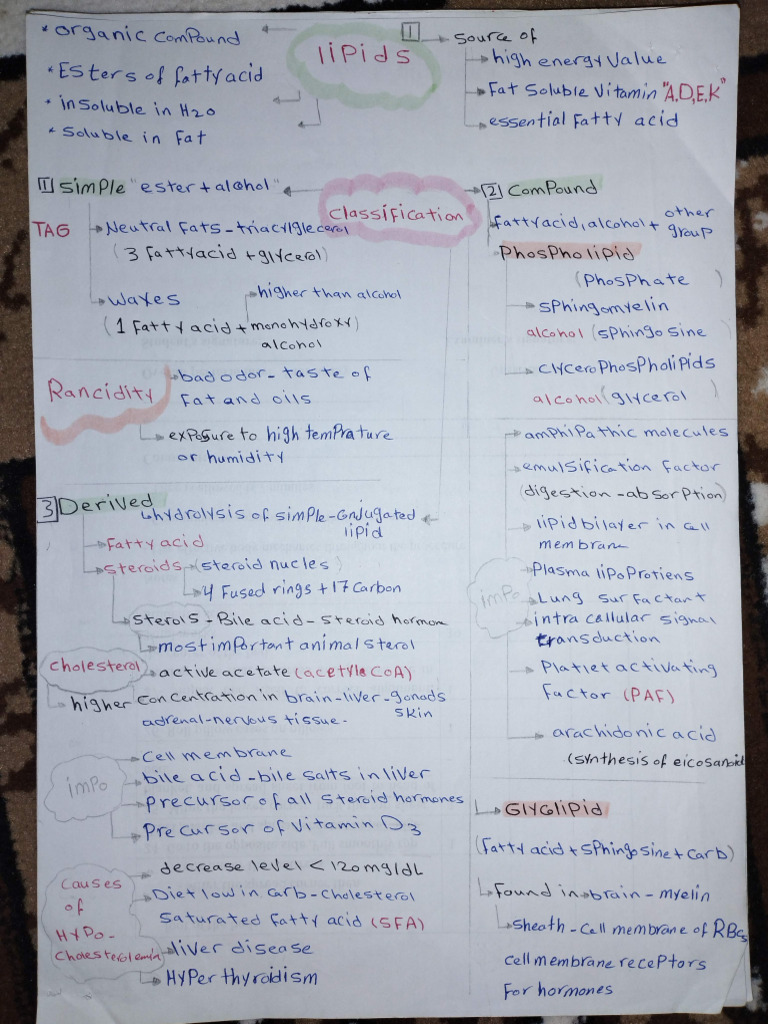 lipids
* organic compound
* Esters of fatty acid
* insoluble in H2O
* Soluble in Fat
1 source of
high energy value
Fat Soluble Vitamin "A,D,E,K"
essential Fatty acid
Classification
1 simple "ester + alohol"
TAG
Neutral Fats - triacylglecerol
(3 Fattyacid + glycerol)
waxes
higher than alcohol
(1 Fatty acid + monohydroxy)
alcohol
Rancidity
bad odor - taste of
Fat and oils
exposure to high temprature
or humidity
3 Derived
hydrolysis of simple - Conjugated
lipid
Fatty acid
steroids (steroid nucles)
4 Fused rings + 17 Carbon
sterols - Bile acid - steroid hormon
most important animal sterol
cholesterol
active acetate (acetyle CoA)
higher concentration in brain - liver - gonads
skin
adrenal - nervous tissue.
impo
cell membrane
bile acid - bile salts in liver
precursor of all steroid hormones
Precursor of Vitamin D3
causes
of
HYPO-
cholesterolemia
decrease level < 120 mg/dL
Diet low in carb - cholesterol
saturated Fatty acid (SFA)
liver disease
Hyper thyroidism
2 Compound
fattyacid, alcohol + other
group
Phospholipid
(Phosphate )
sphingomyelin
alcohol (sphingosine )
Glycerophospholipids
alcohol (glycerol )
amphipathic molecules
emulsification factor
(digestion - absorption)
lipid bilayer in cell
membrane
impo
Plasma lipoProtiens
Lung surfactant
intra cellular signal
transduction
Platlet activating
factor (PAF)
arachidonic acid
(synthesis of eicosanoid
Glyglipid
(Fatty acid + Sphingosine + Carb)
found in brain - myelin
sheath - cell membrane of RBCs
cell membrane receptors
For hormones